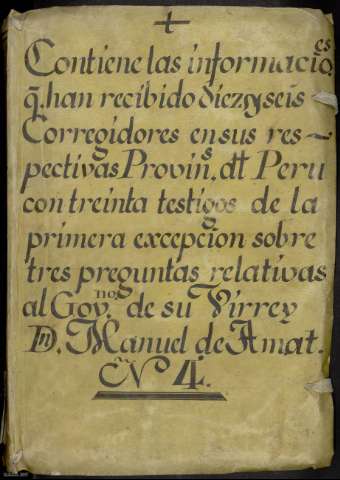 +
Contiene las informacio.es
q̃. han recibido diez y seis
Corregidores en sus res~
pectivas Provin.s dl Peru
con treinta testigos de la
primera excepcion sobre
tres preguntas relativas
al Gov.no de su Virrey
Dn. Manuel de Amat.
N 4.